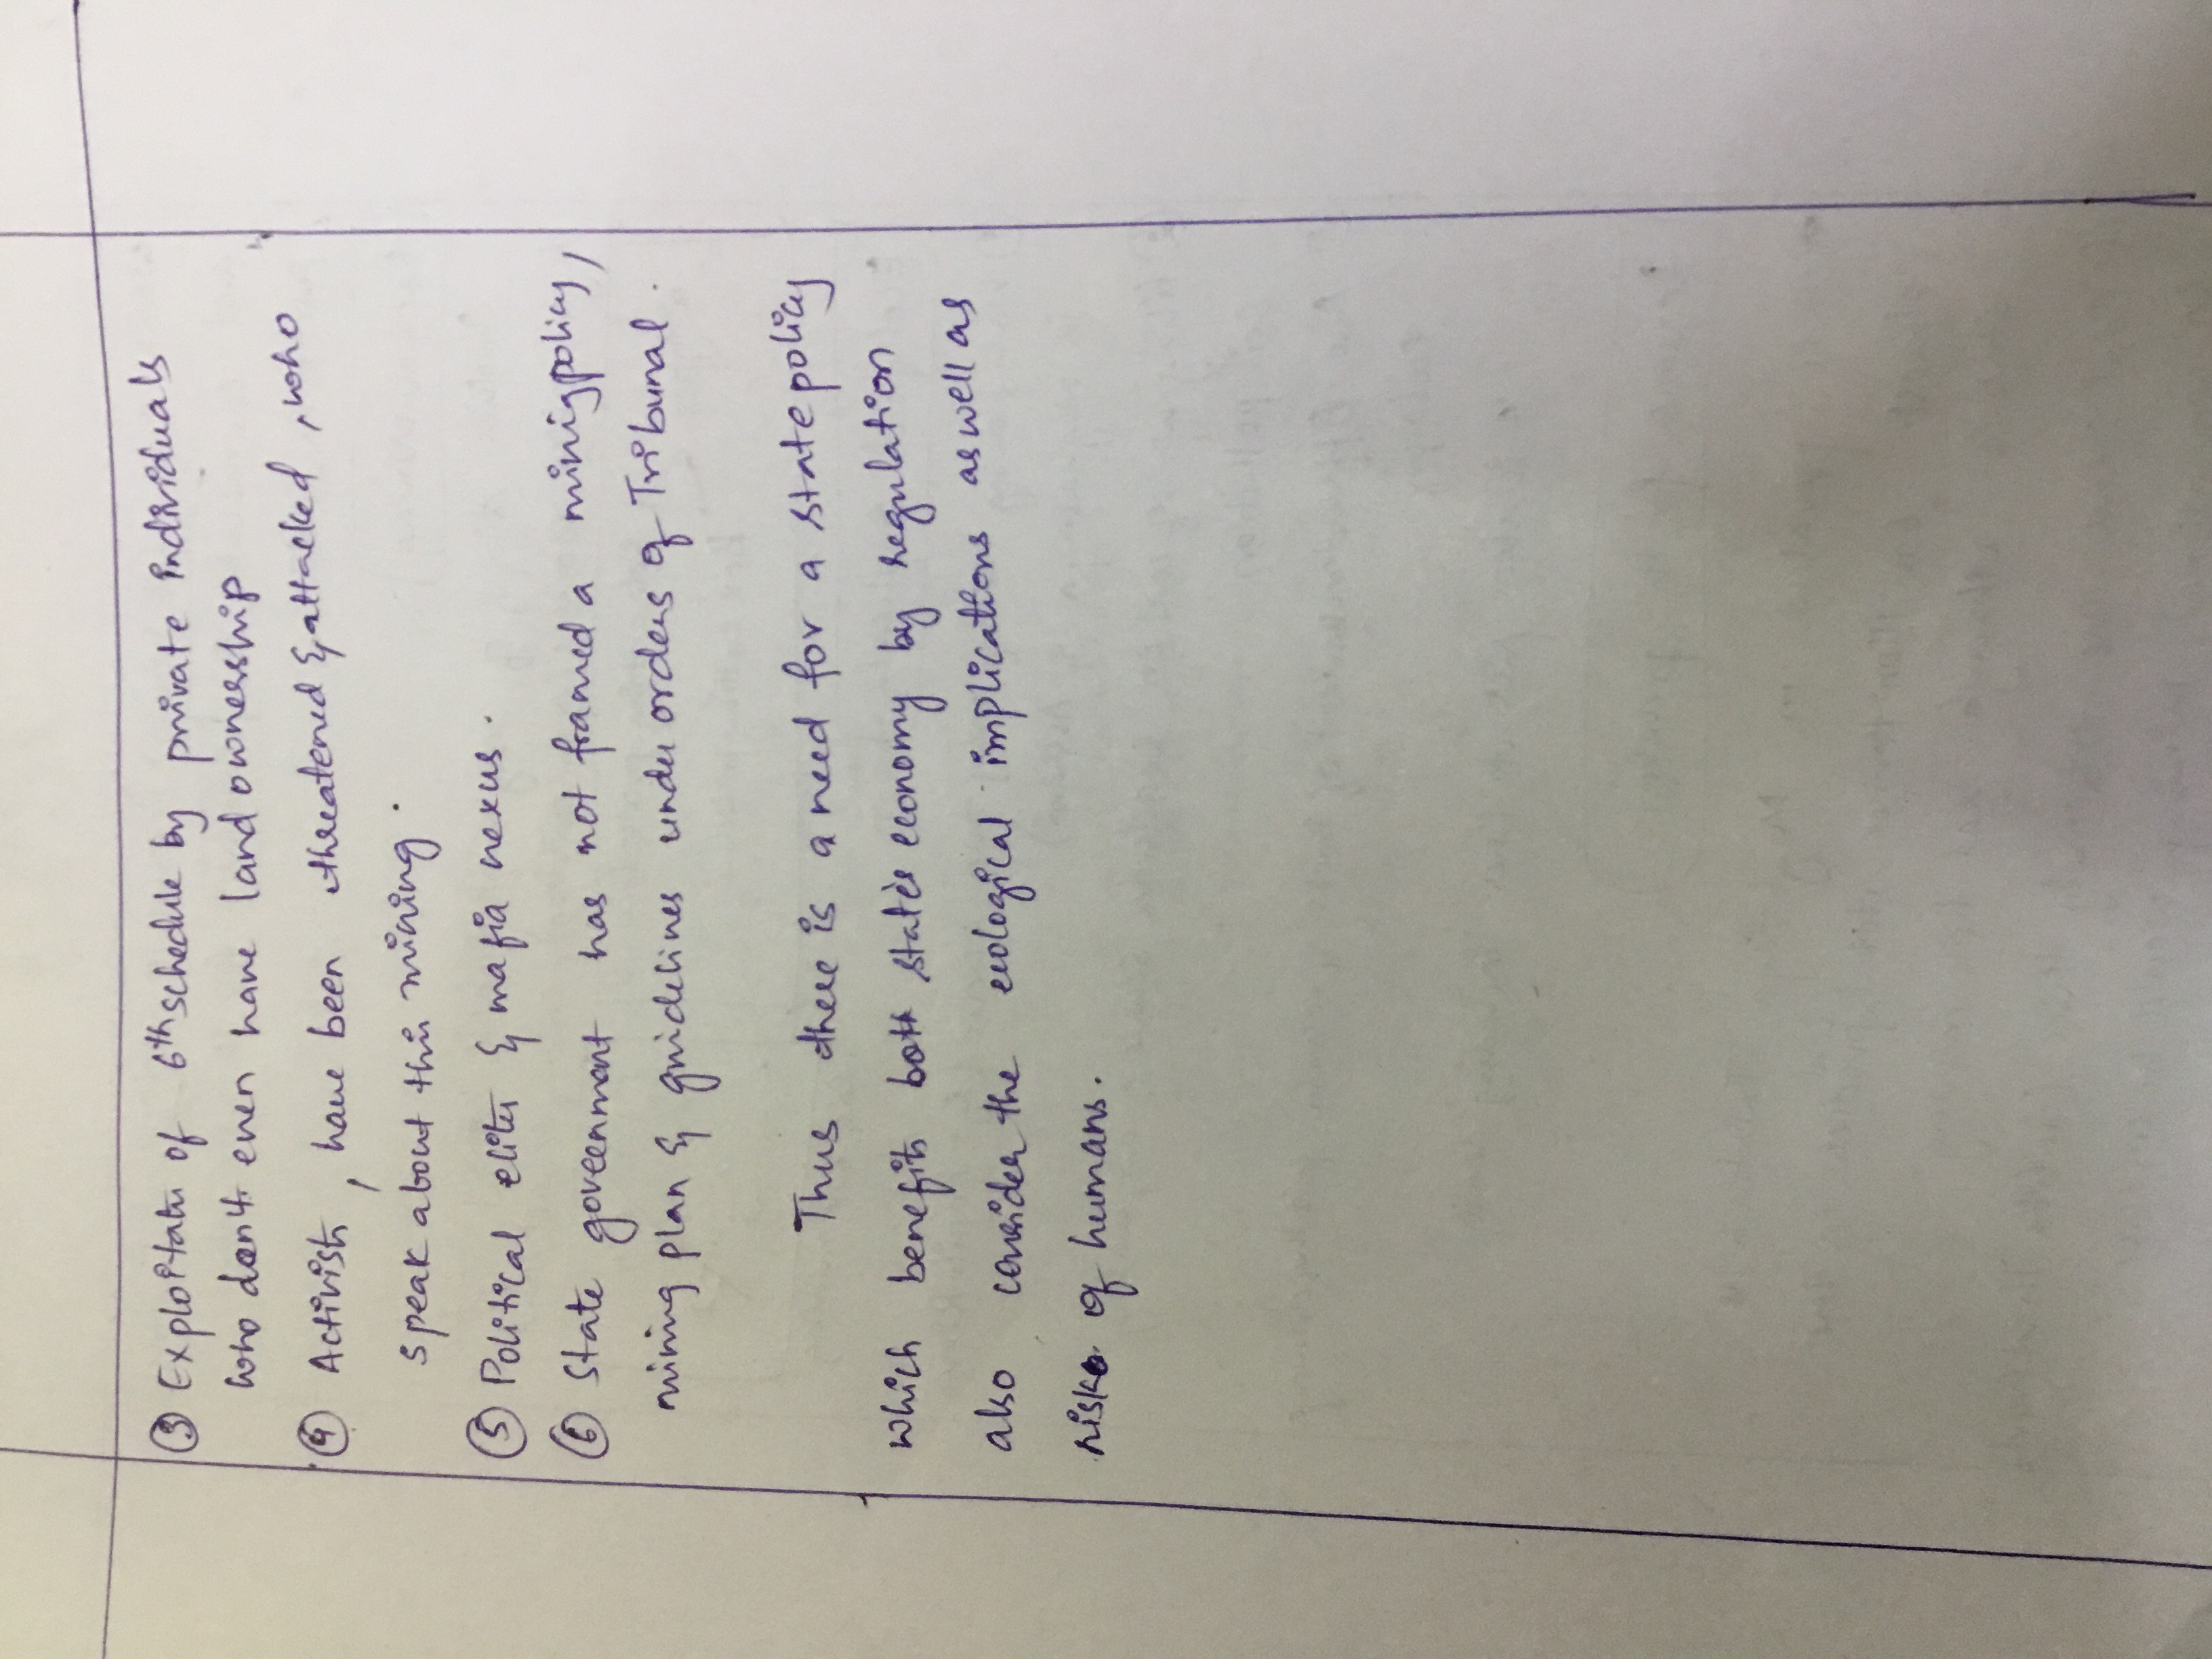 ③ Exploitatn of 6th schedule by private individuals
who don't even have land ownership
④ Activists, have been threatened & attacked, who
speak about this mining.
⑤ Political elites & mafia nexus.
⑥ State government has not framed a minig policy,
mining plan & guidelines under orders of Tribunal.
Thus there is a need for a state policy
which benefits both state's economy by regulation
also consider the ecological implications as well as
risks of humans.